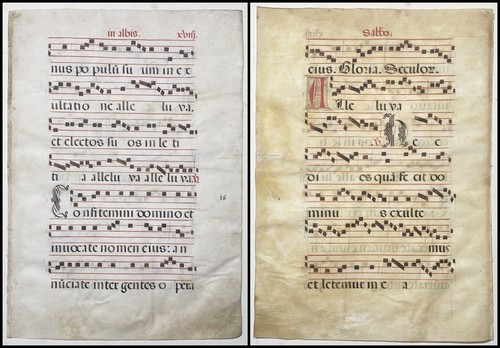 in albis. xviij
nus po pulũ su um in ex
ultatio ne alle lu va.
et electos su os in le ti
ti a allelu va alle lu va.
Confitemini domino et
invocate nomen eius: an
nũciate inter gentes o pera
Sabbo.
eius. Gloria. Seculor.
Alle lu va
℣. Hec
di es quã fe cit do
minu s exulte
mus
et letemur in e a